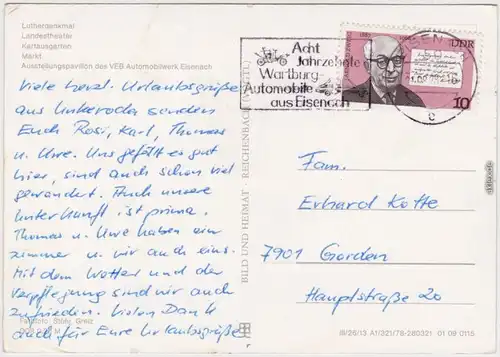 Lutherdenkmal
Landestheater
Kartausgarten
Markt
Ausstellungspavillon des VEB Automobilwerk Eisenach
Viele herzl. Urlaubsgrüße
aus Unkeroda senden
Euch Rosi, Karl, Thomas
u. Uwe. Uns gefällt es gut
hier, sind auch schon viel
gewandert. Auch unsere
Unterkunft ist prima.
Thomas u. Uwe haben ein
Zimmer u. wir auch eins.
Mit dem Wetter und der
Verpflegung sind wir auch
zufrieden. Vielen Dank
auch für Eure Urlaubsgrüße
BILD UND HEIMAT · REICHENBACH
Acht
Jahrzehnte
Wartburg-
Automobile
aus Eisenach
DDR
10
Fam.
Erhard Kotte
7901 Gorden
Hauptstraße 20
III/26/13 A1/321/78-280321 01 09 0115